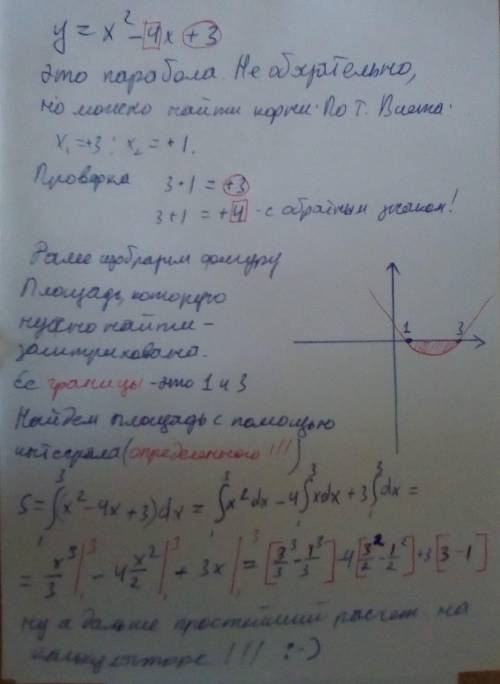 y = x² - 4x + 3
Это парабола. Не обязательно,
но можно найти корни. По т. Виета.
x₁ = +3 ; x₂ = +1.
Проверка 3 · 1 = +3
3 + 1 = +4 - с обратным знаком!
Далее изобразим фигуру
Площадь, которую
нужно найти -
заштрихована.
Её границы - это 1 и 3
1 3
Найдем площадь с помощью
интеграла (определенного!!!)
S = ∫₁³ (x² - 4x + 3) dx = ∫₁³ x² dx - 4 ∫₁³ x dx + 3 ∫₁³ dx =
= x³/3 |₁³ - 4 x²/2 |₁³ + 3x |₁³ = [3³/3 - 1³/3] - 4 [3²/2 - 1²/2] + 3 [3 - 1]
ну а дальше простейший расчет на
калькуляторе !!! :-)